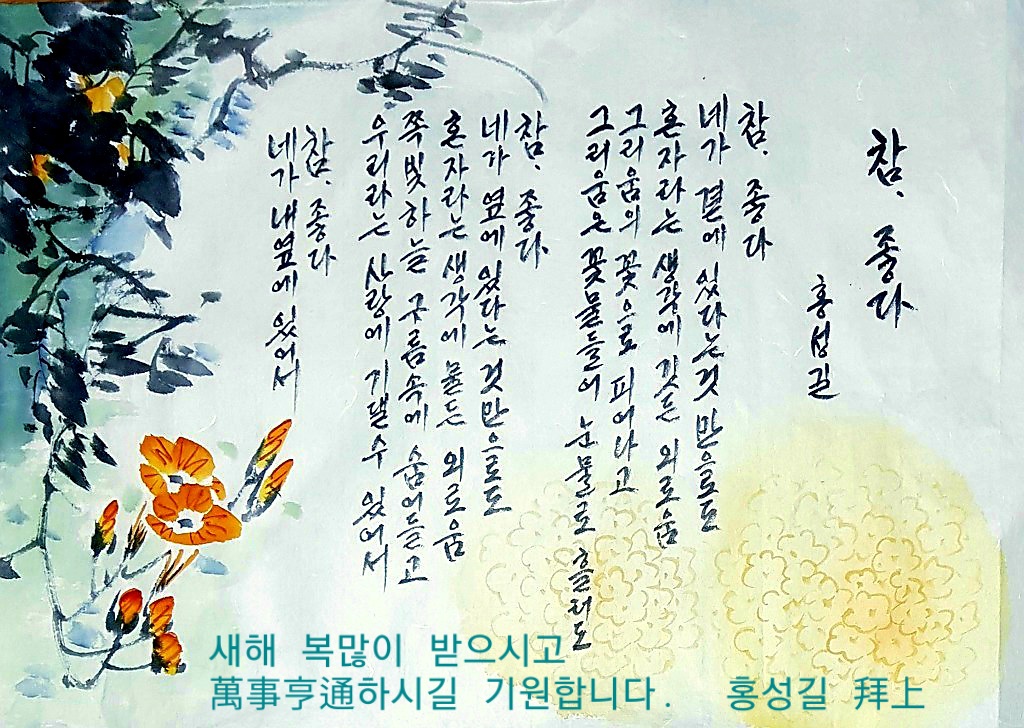 참. 좋다
홍성길
참. 좋다
네가 곁에 있다는것 만으로도
혼자라는 생각에 깃든 외로움
그리움의 꽃으로 피어나고
그리움은 꽃물들어 눈물로 흘러도
참. 좋다
네가 옆에 있다는것 만으로도
혼자라는 생각에 물든 외로움
쪽빛하늘 구름속에 숨어들고
우리라는 사랑에 기댈수 있어서
참. 좋다
네가 내옆에 있어서
새해 복많이 받으시고
萬事亨通하시길 기원합니다. 홍성길 拜上